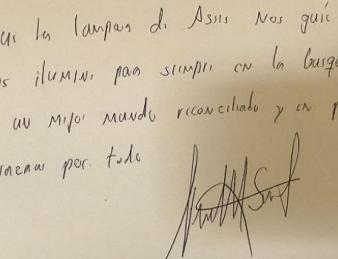 la lampara de Asis Nos guíe
ilumine para siempre en la
un mejor mundo reconciliado y en
por todo